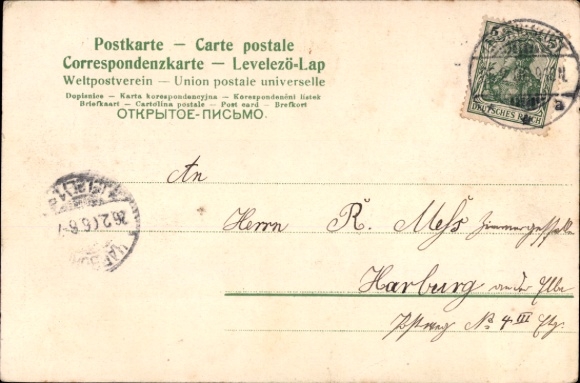 Postkarte – Carte postale
Correspondenzkarte – Levelező-Lap
Weltpostverein – Union postale universelle
Dopisnice – Karta korespondencyjna – Korespondenční listek
Briefkaart – Cartolina postale – Post card – Brefkort
ОТКРЫТОЕ-ПИСЬМО.
DEUTSCHES REICH
An
Herrn R. Mess Zimmergeselle
Harburg an der Elbe
Postweg No 4 III Etg.
26.2.06.6-7